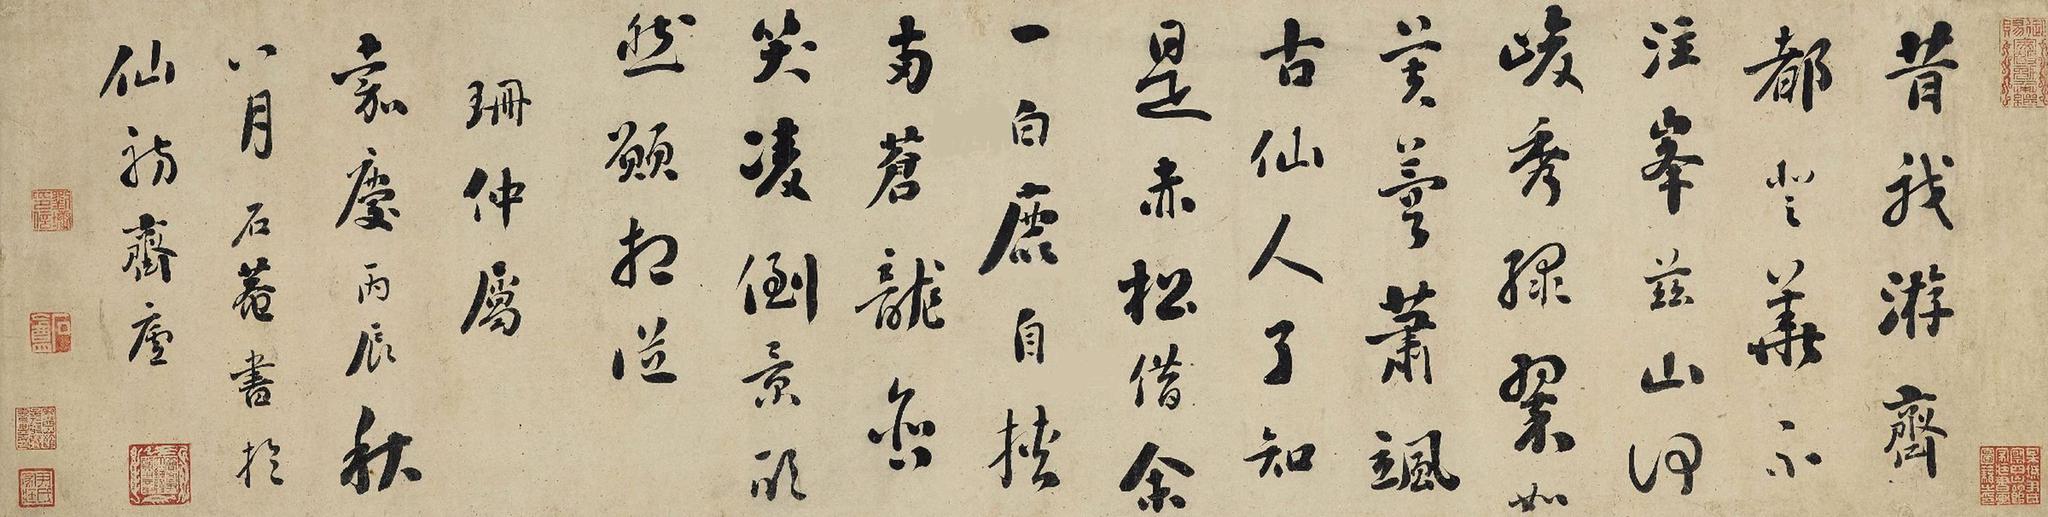 昔我游齊
都登華不
注峯茲山何
峻秀綠翠如
芙蓉蕭颯
古仙人了知
是赤松借余
一白鹿自挾
兩蒼龍含
笑凌倒景欣
然願相從
珊仲屬
嘉慶丙辰秋
八月石菴書於
仙舫齋廬